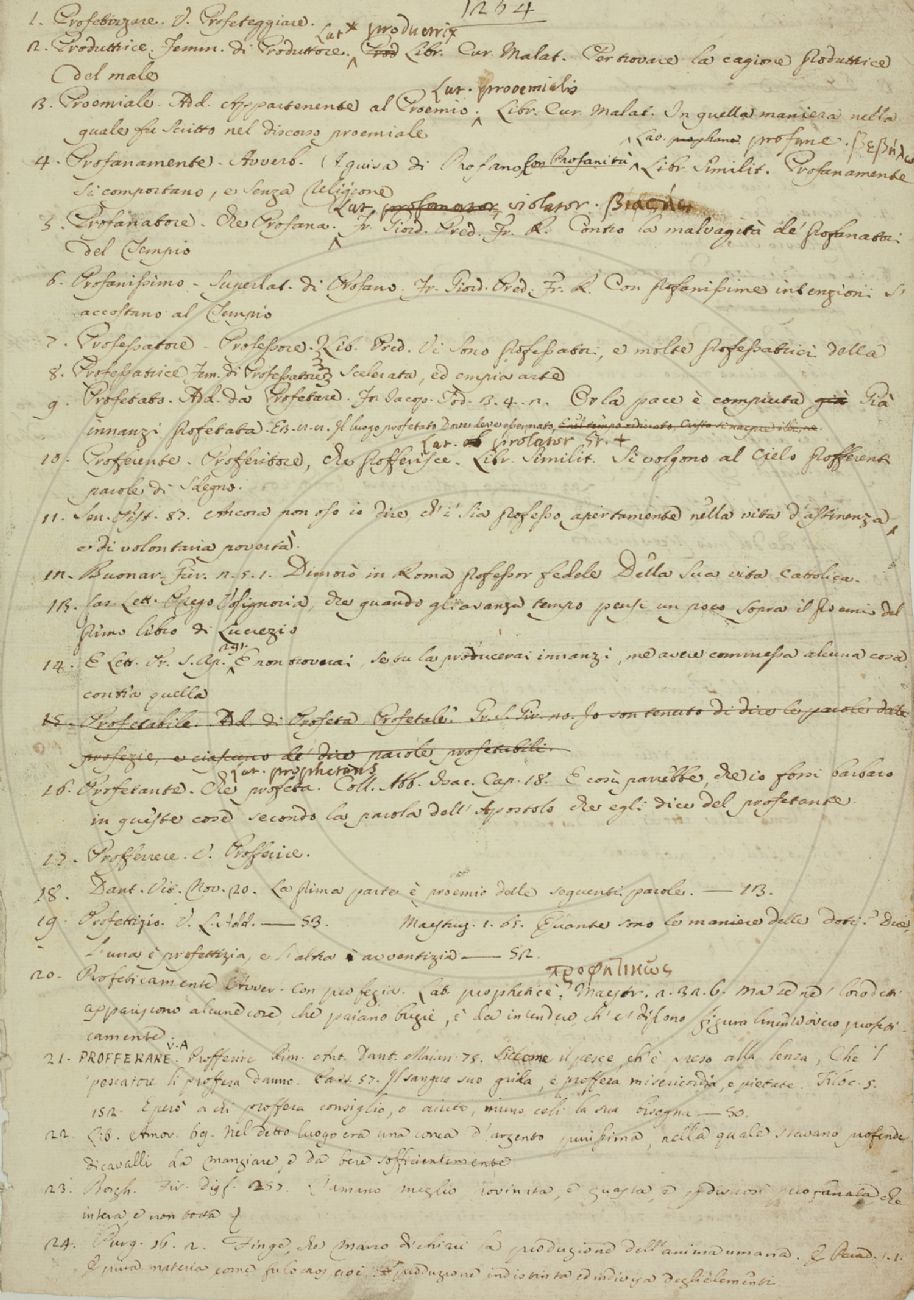 1264
1. Profetezzare. V. Profeteggiare.
Lat. productrix
2. Produttrice. Femm. di Produttore. Libr. Cur. Malat. Per trovare la cagione produttrice
del male
Lat. prooemialis
3. Proemiale. Add. Appartenente al Proemio. Libr. Cur. Malat. In quella maniera nella
quale fu scritto nel discorso proemiale
Lat. prophane profane.
4. Profanamente. Avverb. A guisa di Profano, con Profanità Libr. Similit. Profanamente
si comportano, e senza Religione
Lat. profanator violator.
5. Profanatore. Che Profana. Fr. Giord. Pred. Fr. R. Contro la malvagità de' profanatori
del Tempio
6. Profanissimo. Superlat. di Profano. Fr. Giord. Pred. Fr. R. Con profanissime intenzioni s'
accostano al Tempio
7. Professatore. Professore. Lib. Pred. Vi sono professatori, e molte professatrici della
8. Professatrice Fem. di Professatore Scelerata, ed empia arte
9. Profetato. Add. da Profetare. Fr. Iacop. Tod. 3. 4. 12. Or la pace è compiuta già Già
innanzi profetata. Il luogo profetato
Lat. prolator Gr. +
10. Profferente. Profferitore, che profferisce. Libr. Similit. Si volgono al Cielo profferenti
parole di sdegno.
11. Sen. Pist. 87. Ancora non oso io dire, ch'i' sia professo apertamente nella vita d'astinenza,
e di volontaria povertà.
12. Buonar. Fier. 2. 5. 1. Dimorò in Roma professor fedele Della sua vita cattolica.
13. Lett. Priego Vosignoria, che quando gli avanza tempo pensi un poco sopra il proemio del
primo libro di Lucrezio
14. E Lett. Pr. S. Ap. E non troverai, se tu la producerai innanzi, me avere commessa alcuna cosa
contra quella
15. Profetabile. Add. di Profeta Profetale. Fr. S. Gir. Io son tenuto di dire le parole dele
profezie, e ciascuno de' dire parole profetabili.
Lat. prophetans
16. Profetante. Che profeta. Coll. Abb. Isac. Cap. 18. E così parrebbe, che io fossi barbaro
in queste cose secondo la parola dell'Apostolo che egli dice del profetante.
17. Profferere. V. Profferire.
18. Dant. Vit. Nov. 20. La prima parte è proemio delle seguenti parole. — 113.
19. Profettizio. V. L. Add. — 53. Maestruz. 1. 65. Quante sono le maniere delle doti? Due
l'una è profettizia, e l'altra è avventizia — 52.
προφητικῶς
20. Profeticamente Avver. Con profezia. Lat. prophetice. Maestr. 2. 32. 6. Ma se ne' loro detti
appariscono alcune cose che paiano bugie, è da intendere ch'e' dissono figurativamente ovvero profeti-
camente
21. PROFFERARE V. A. Profferire Rim. Ant. Dant. Maian. 75. Siccome il pesce ch'è preso alla lenza, Che 'l
pescatore li proffera danno. 57. Il sangue suo grida, e proffera misericordia, e pietate. Filoc. 5.
152. E però a chi proffera consiglio, o aiuto,
22. Lib. Amor. 69. Nel detto luogo era una conca d'argento purissima, nella quale stavano profende
di cavalli da mangiare, e da bere sofficientemente
23. Borgh. Fir. disf. 257. S'amano meglio rovinata, e guasta, e che
intera, e non tocca
24. Purg. 16. 2. Finge, che Marco dichiari la produzione dell'anima umana. E Parad. 1. 1.
E pura materia come produzione indistinta ed indivisa degli elementi.